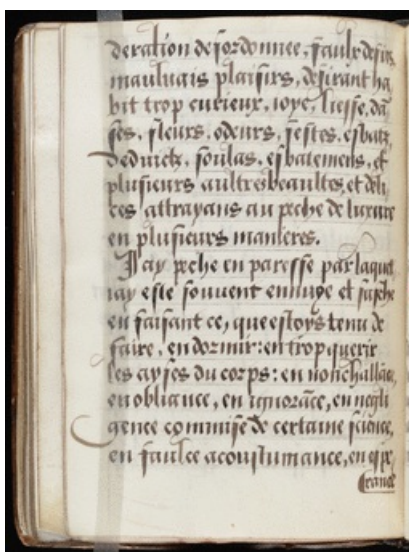 deration desordonnee, faulx desirs,
mauluais plaisirs, desirant ha
bit trop curieux, ioye, liesse, dā
ses, fleurs, odeurs, festes, esbatz,
deduictz, soulas, esbatemens, et
plusieurs aultres beaultes, et deli
ces attrayans au peche de luxure
en plusieurs manieres.
Jay peche en paresse par laquel
iay este souvent ennuye et fasche
en faisant ce, que estoys tenu de
faire, en dormir: en trop querir
les ayses du corps: en nonchallāce,
en obliance, en ignorāce, en negli
gence commise de certaine science,
en faulce acoustumance, en espe
rance